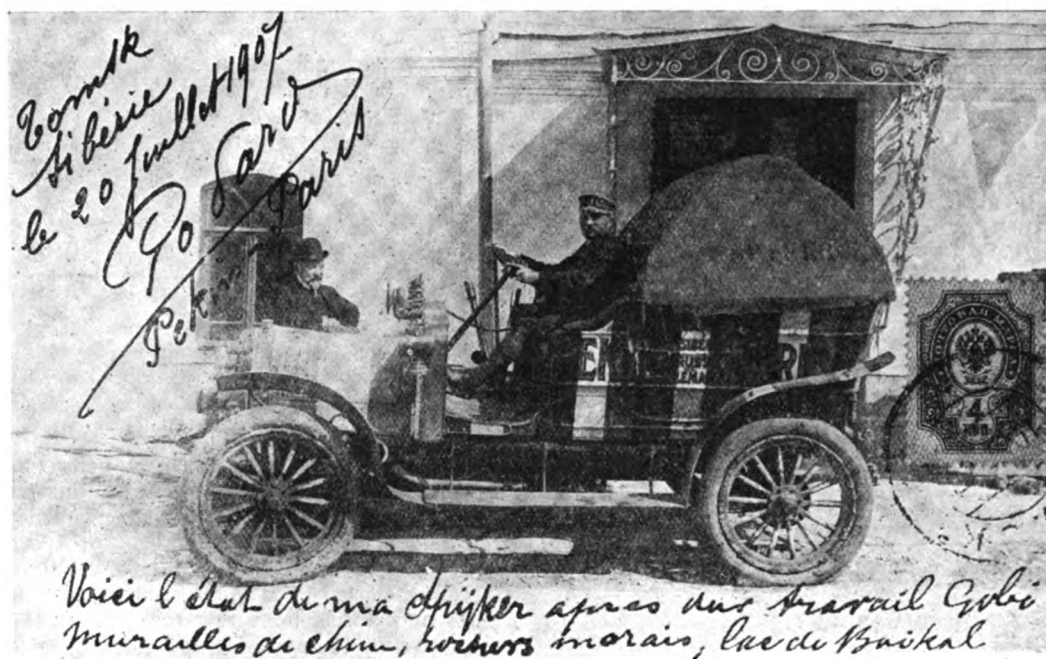 Tomsk
Sibérie
le 20 Juillet 1907
Go Pard
Pekin Paris
4
Voici l'état de ma Spijker apres dur travail Gobi
murailles de chine, rochers marais, lac de Baikal